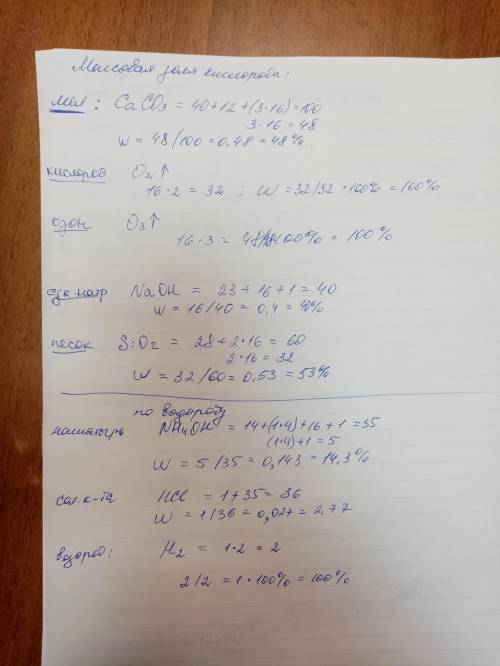 Массовая доля кислорода:
мел: CaCO3 = 40+12+(3·16)=100
3·16 = 48
W = 48/100=0,48=48%.
кислород O2↑
16·2 = 32 ; W = 32/32·100% = 100%
озон O3↑
16·3 = 48/48·100% = 100%
едк.натр NaOH = 23+16+1=40
W = 16/40 = 0,4 = 40%
песок SiO2 = 28+2·16 = 60
2·16 = 32
W = 32/60=0,53=53%
по водороду
нашатырь NH4OH = 14+(1·4)+16+1=35
(1·4)+1=5
W = 5/35=0,143=14,3%
сол.к-та HCl = 1+35=36
W = 1/36=0,027=2,77
водород: H2 = 1·2=2
2/2 = 1·100% = 100%